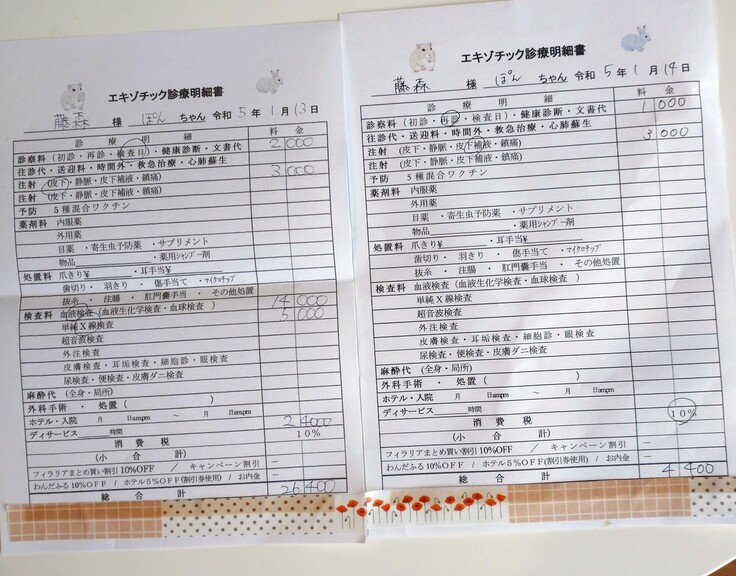 エキゾチック診療明細書
藤森 様 ぽん ちゃん 令和 5 年 1 月 13 日
診療明細 料金
診察料(初診・再診・検査日)・健康診断・文書代 2000
往診代・送迎料・時間外・救急治療・心肺蘇生
注射 (皮下・静脈・皮下補液・鎮痛) 3000
注射 (皮下・静脈・皮下補液・鎮痛)
予防 5種混合ワクチン
薬剤料 内服薬
外用薬
目薬 ・寄生虫予防薬 ・サプリメント
物品 ・薬用シャンプー剤
処置料 爪きり¥ ・耳手当¥
歯切り ・ 羽きり ・ 傷手当て ・マイクロチップ
抜糸 ・ 注腸 ・ 肛門嚢手当 ・ その他処置
検査料 血液検査(血液生化学検査・血球検査 ) 14000
単純X線検査 5000
超音波検査
外注検査
皮膚検査・耳垢検査・細胞診・眼検査
尿検査・便検査・皮膚ダニ検査
麻酔代 (全身・局所)
外科手術 ・ 処置 ( )
ホテル・入院 月 日am.pm ~ 月 日am.pm
ディサービス 時間
消費税 10%
(小合計) 24000
フィラリアまとめ買い割引10%OFF / キャンペーン割引 ー
わんだふる10%OFF / ホテル5%OFF(割引券使用) / お内金 ー
総合計 26400
エキゾチック診療明細書
藤森 様 ぽん ちゃん 令和 5 年 1 月 14 日
診療明細 料金
診察料(初診・再診・検査日)・健康診断・文書代 1000
往診代・送迎料・時間外・救急治療・心肺蘇生
注射 (皮下・静脈・皮下補液・鎮痛) 3000
注射 (皮下・静脈・皮下補液・鎮痛)
予防 5種混合ワクチン
薬剤料 内服薬
外用薬
目薬 ・寄生虫予防薬 ・サプリメント
物品 ・薬用シャンプー剤
処置料 爪きり¥ ・耳手当¥
歯切り ・ 羽きり ・ 傷手当て ・マイクロチップ
抜糸 ・ 注腸 ・ 肛門嚢手当 ・ その他処置
検査料 血液検査(血液生化学検査・血球検査 )
単純X線検査
超音波検査
外注検査
皮膚検査・耳垢検査・細胞診・眼検査
尿検査・便検査・皮膚ダニ検査
麻酔代 (全身・局所)
外科手術 ・ 処置 ( )
ホテル・入院 月 日am.pm ~ 月 日am.pm
ディサービス 時間
消費税 10%
(小合計)
フィラリアまとめ買い割引10%OFF / キャンペーン割引 ー
わんだふる10%OFF / ホテル5%OFF(割引券使用) / お内金 ー
総合計 4400